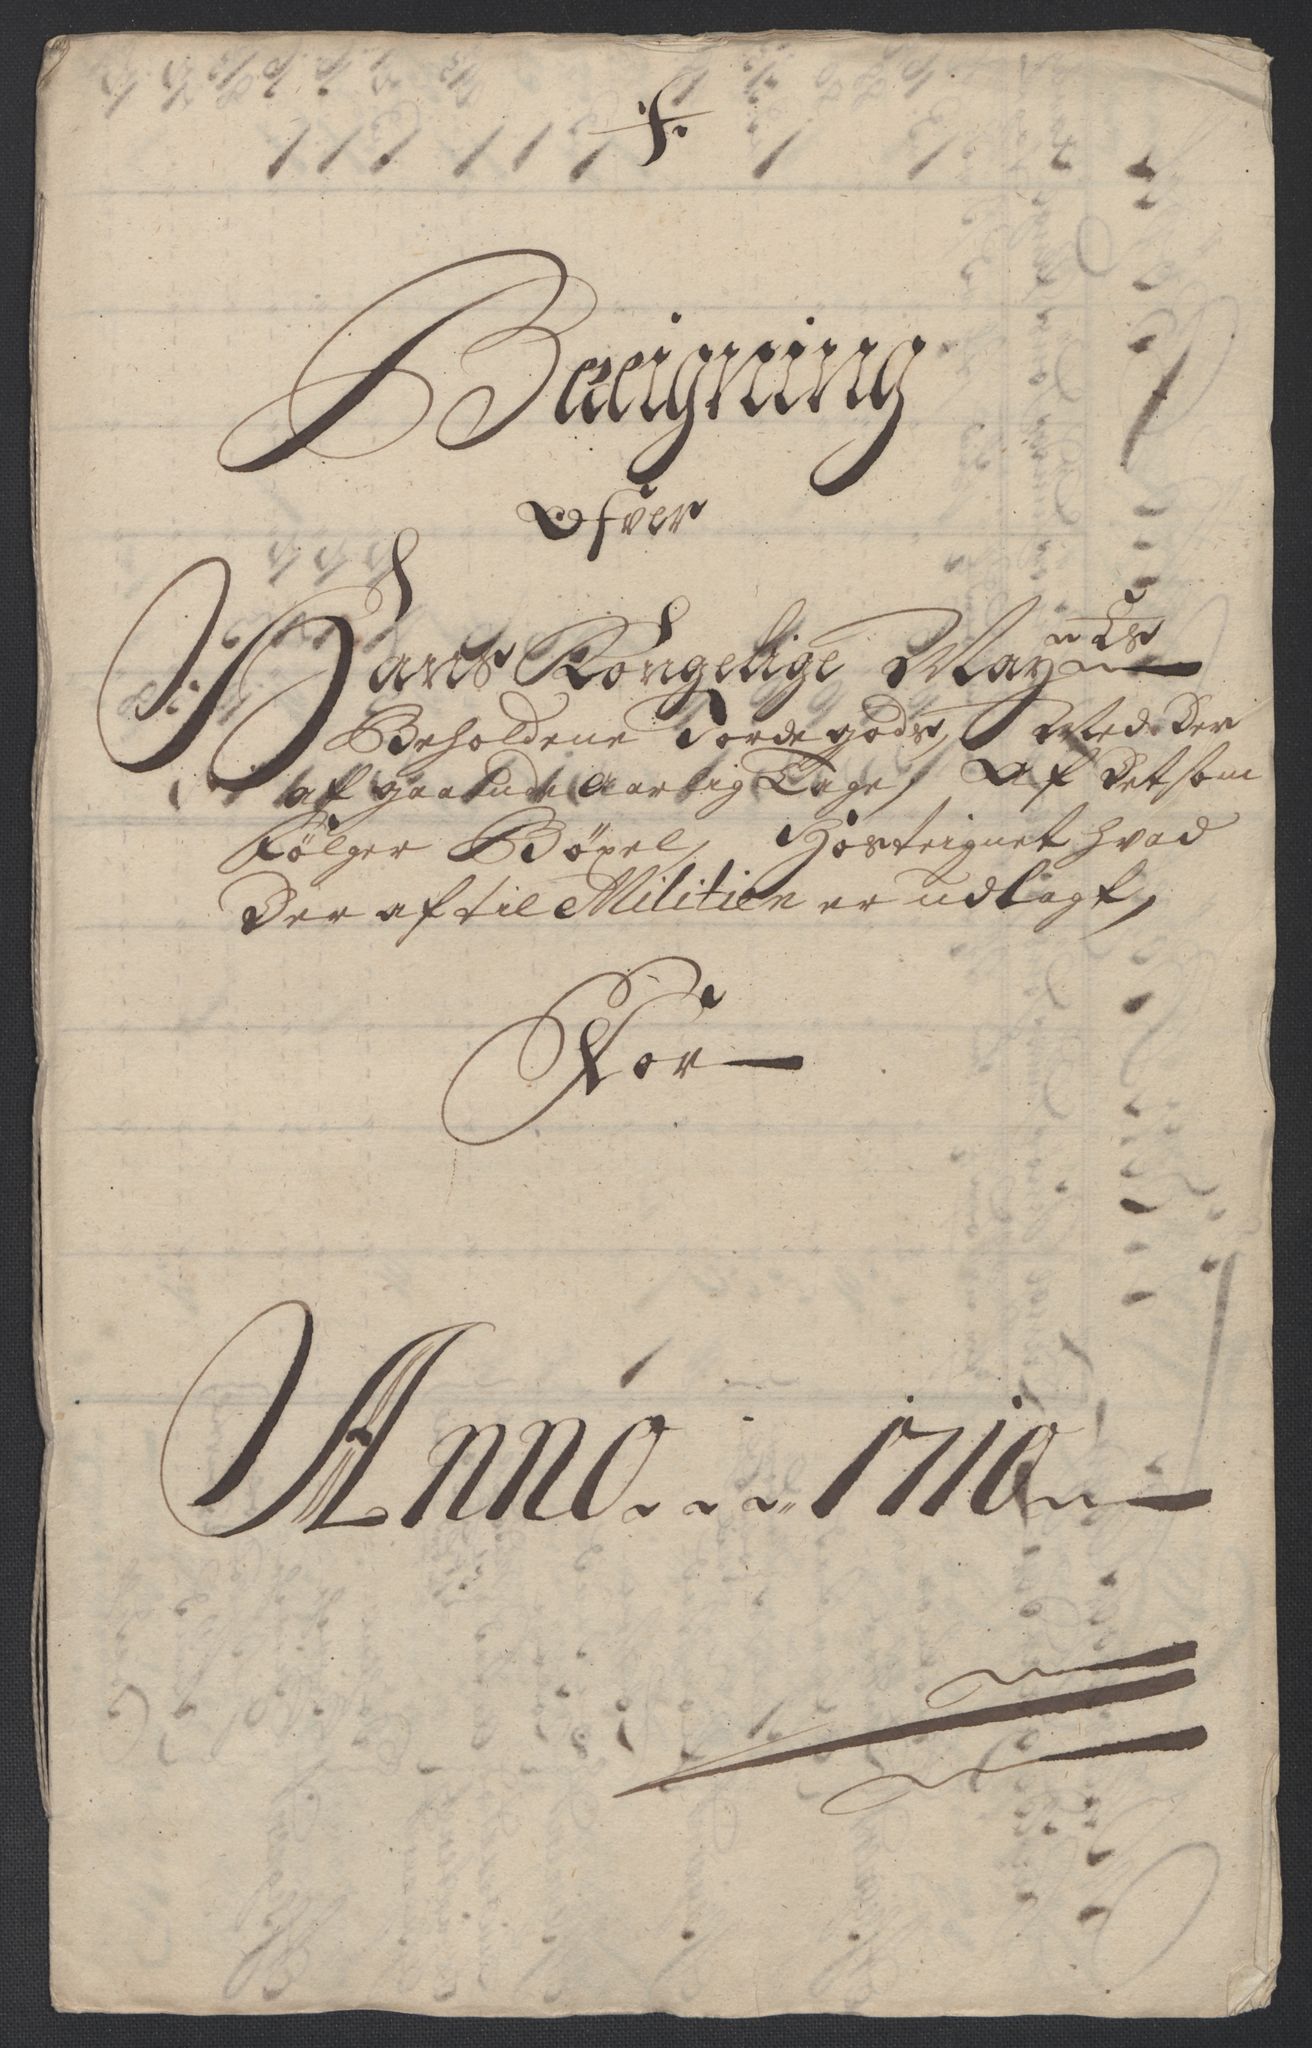 f
Bereigning
Ofver
Hans Kongelige Mayts
Beholdene Jordegods, Med Der
af gaaende aarlig Tage, Af Det som
Følger Böxel, Hosteignet hvad
Der af til Militien er udlagt,
For
Anno 1710